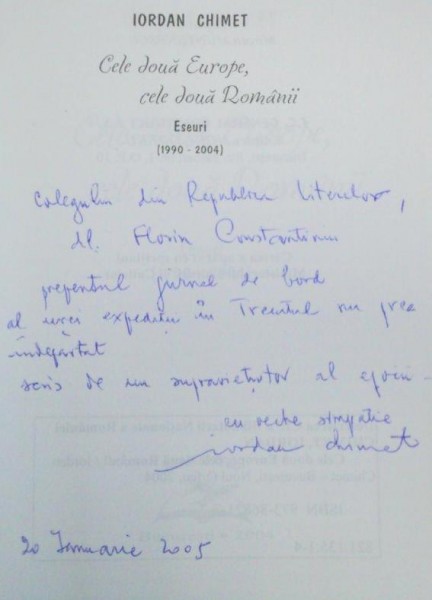 IORDAN CHIMET
Cele două Europe,
cele două Românii
Eseuri
(1990 - 2004)
colegului din Republica Literelor,
dl. Florin Constantiniu
prezentul jurnal de bord
al unei expediții în Trecutul nu prea
îndepărtat
scris de un supraviețuitor al epocii -
cu veche simpatie
iordan chimet
20 Ianuarie 2005